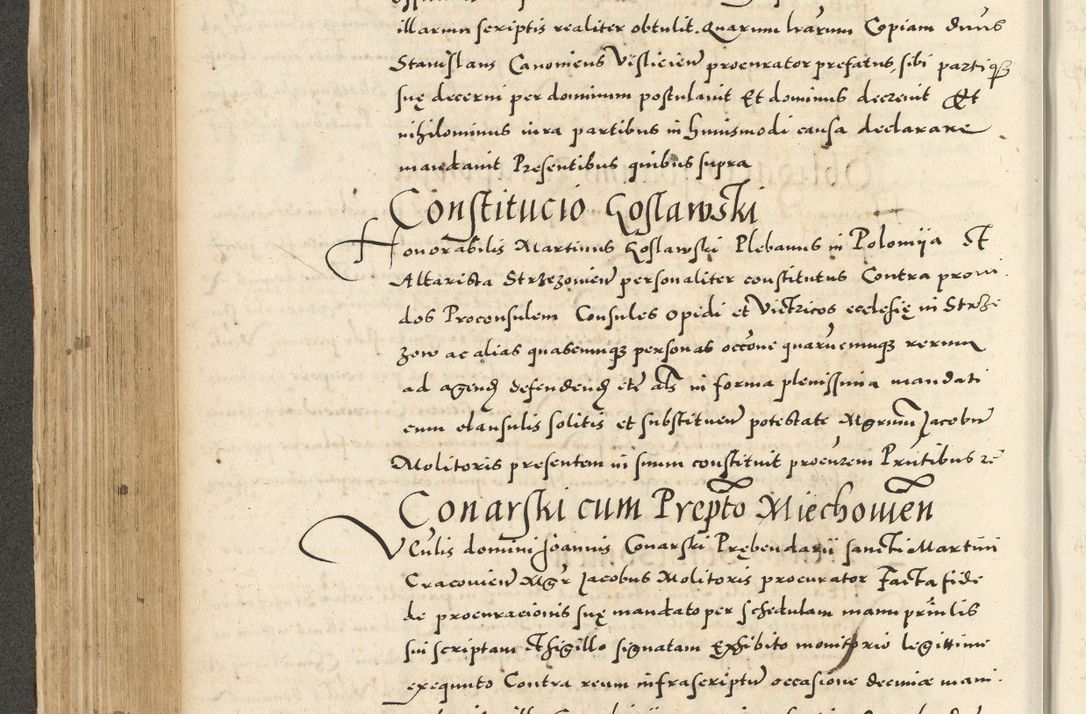 illarum scriptis realiter obtulit. Quarum lrarum Copiam dnus
Stanislaus Canonicus Visliciens procurator prefatus, sibi partiqz
suę decerni per dominum postulauit Et dominus decreuit Et
nihilominus iura partibus in huiusmodi causa declarare
mandauit Presentibus quibus supra
Constitucio Goslawski
Honorabilis Martinus Goslawski Plebanus in Polomija Et
Altarista Strzezouien personaliter constitutus Contra proui
dos Proconsulem Consules opidi et Victricos ecclesię in Strze
zow ac alias quascumqz personas occone quarumcumqz rerum
ad agend defendend etc als in forma plenissima mandati
cum clausulis solitis et substituen potestate Mgrum Jacobu
Molitoris presentem in suum constituit procurem Pntibus re
Conarski cum Prepto Miechouien
Venlis domini Joannis Conarski Prębendarij sancti Martini
Cracouien Mgr Jacobus Molitoris procurator Facta fide
de procuracionis suę mandato per schedulam manu prinlis
sui scriptam et sigillo signatam Exhibito monitorio legittime
exequuto Contra reum infrascriptu occasione decimae mani